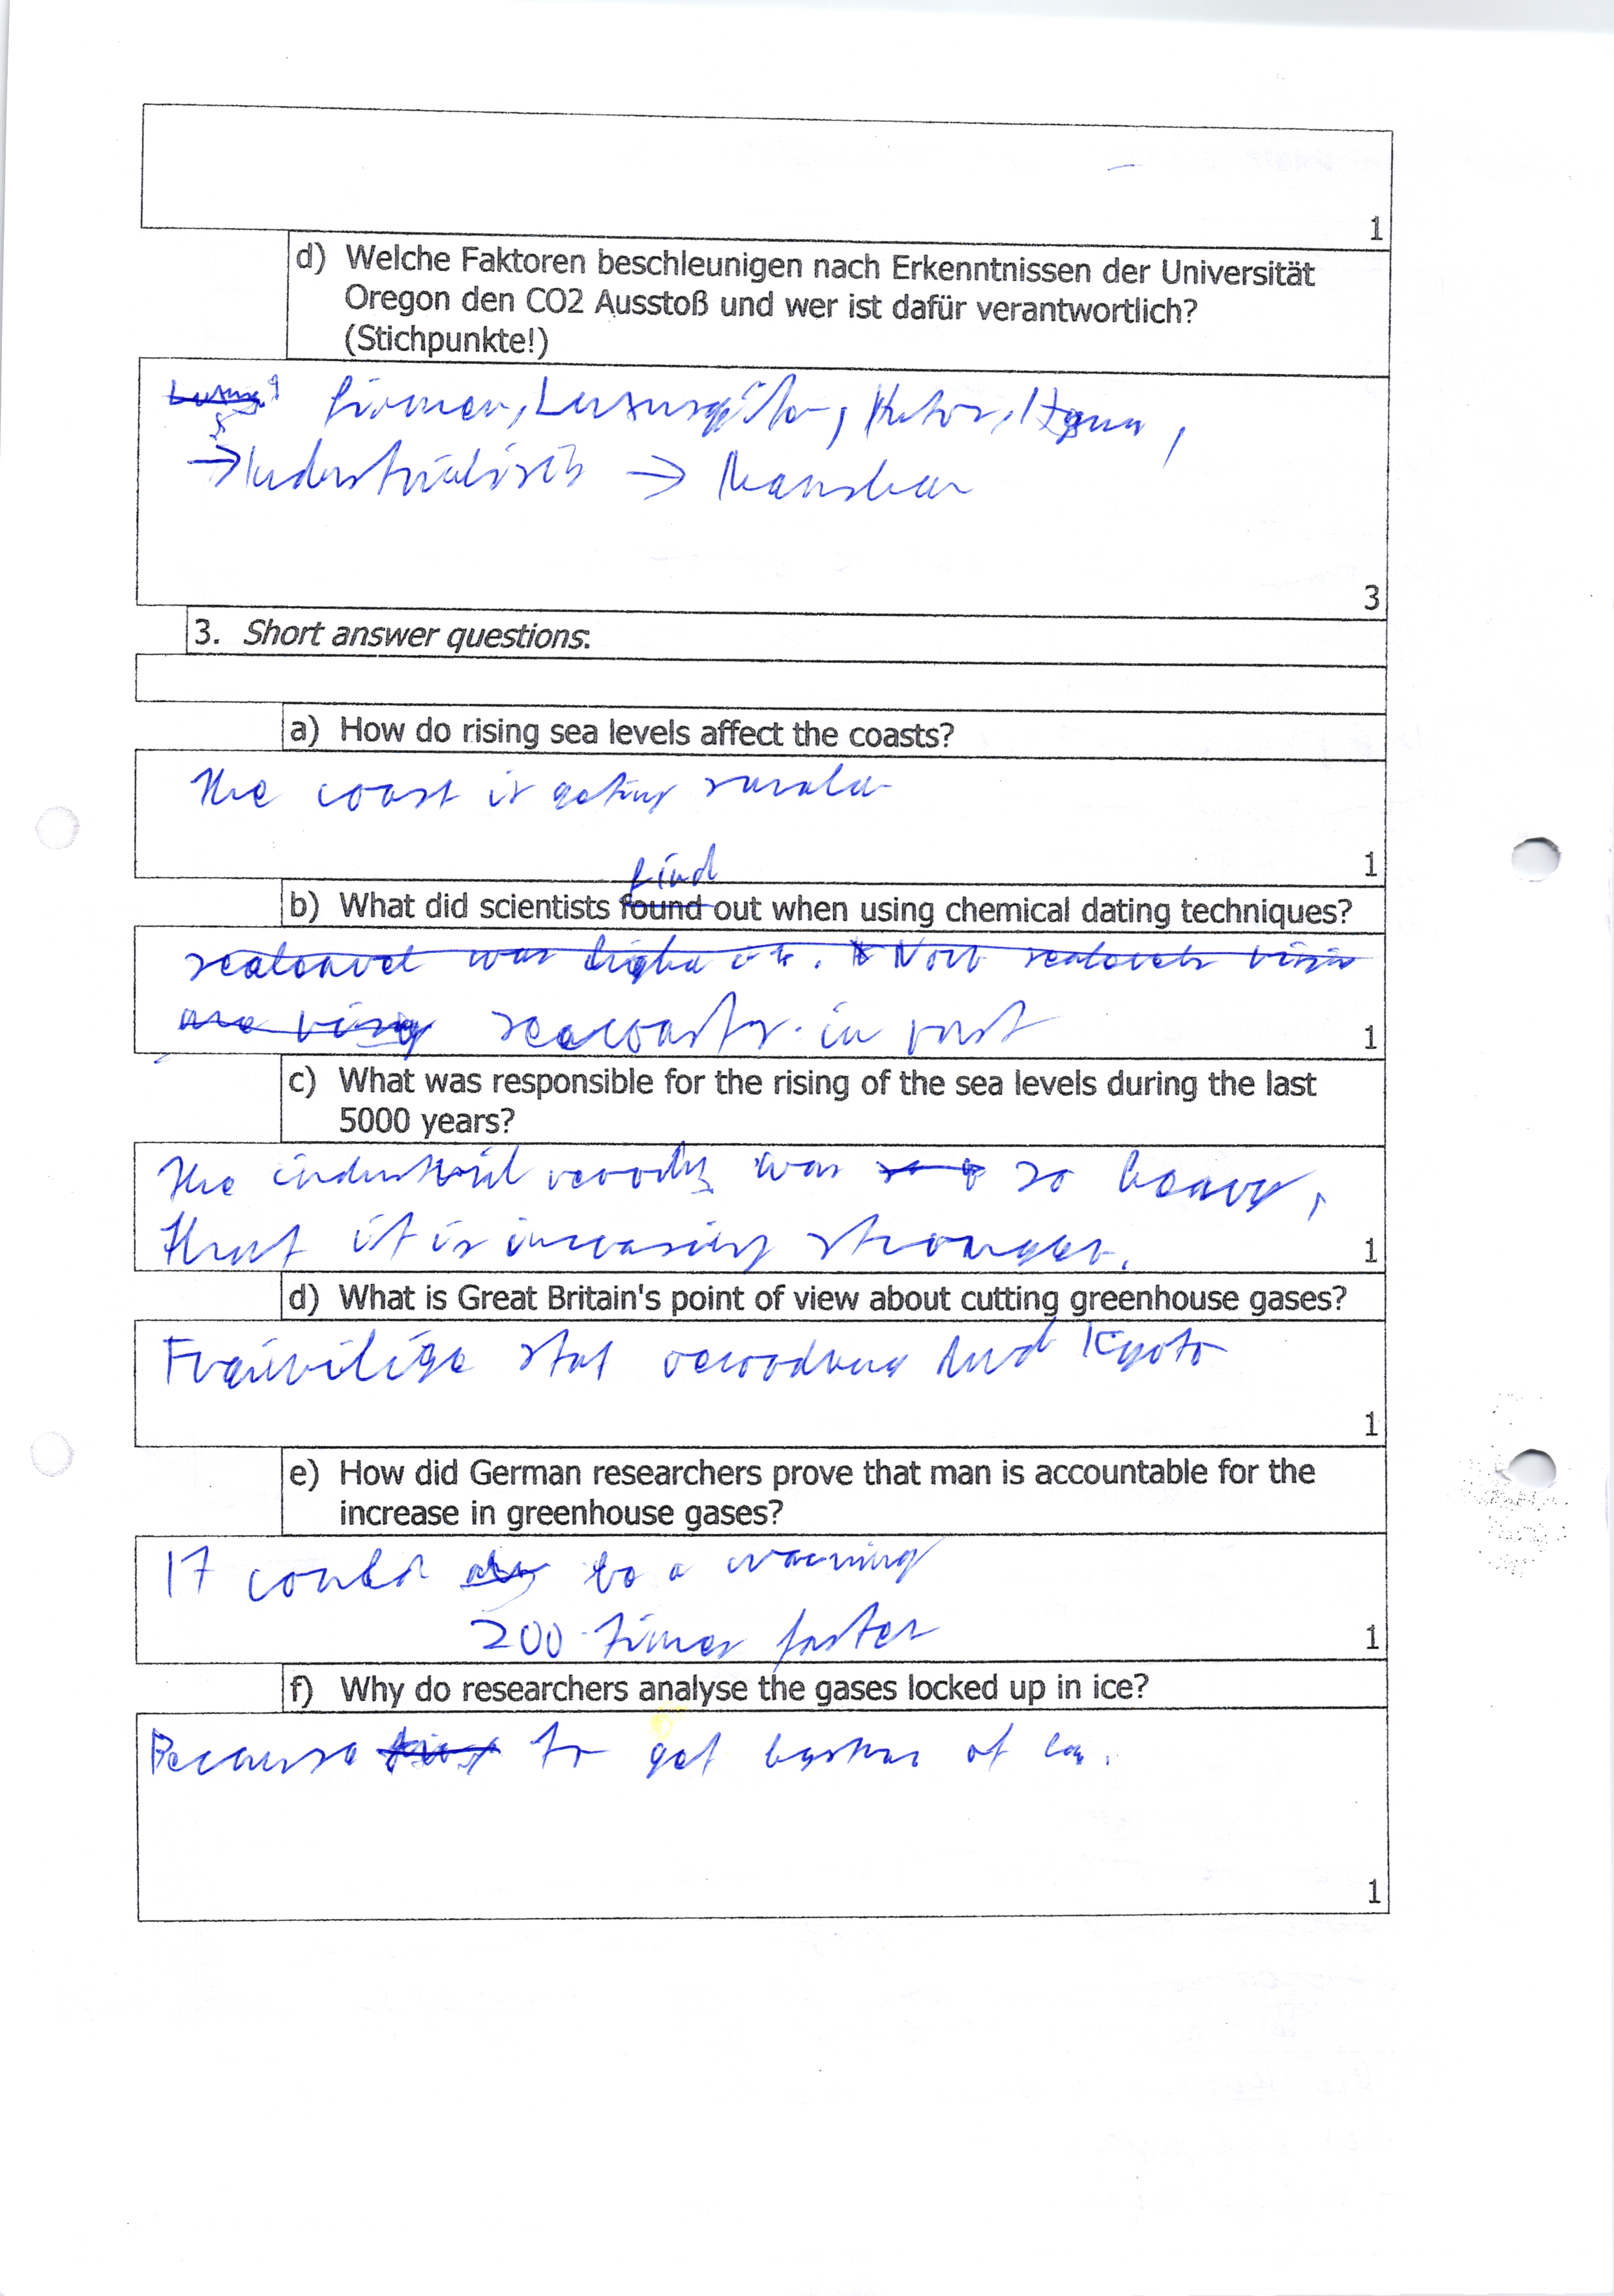 1
d) Welche Faktoren beschleunigen nach Erkenntnissen der Universität
Oregon den CO2 Ausstoß und wer ist dafür verantwortlich?
(Stichpunkte!)
Firmen, Luxusgüter, Autos,
→ Industrialisi → Menschen
3
3. Short answer questions:
a) How do rising sea levels affect the coasts?
The coast is geting smaler
1
find
b) What did scientists found out when using chemical dating techniques?
seacoasts in past
1
c) What was responsible for the rising of the sea levels during the last
5000 years?
The industrial was so heavy,
that it is increasing stronger.
1
d) What is Great Britain's point of view about cutting greenhouse gases?
Freiwilige stat Kyoto
1
e) How did German researchers prove that man is accountable for the
increase in greenhouse gases?
It could to a warming
200 times faster
1
f) Why do researchers analyse the gases locked up in ice?
Because to get of
1